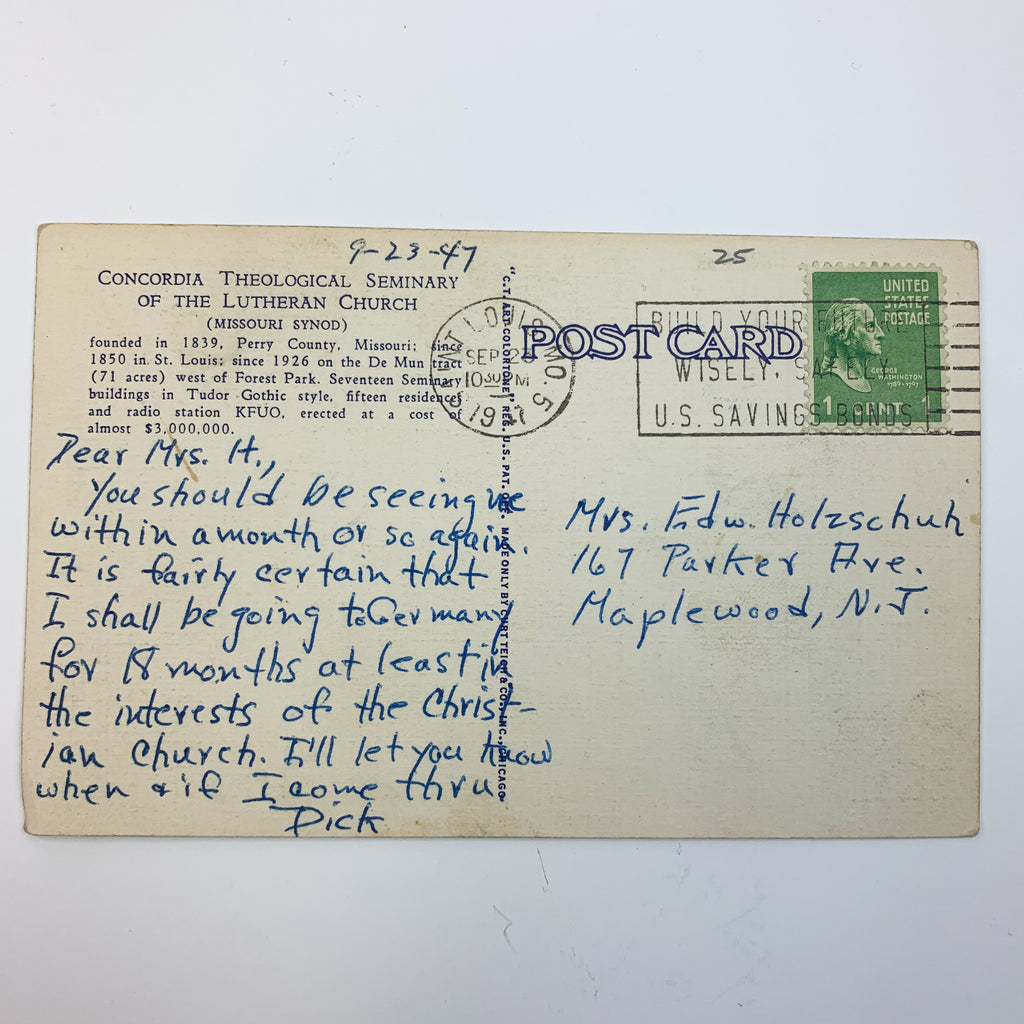 9-23-47
25
CONCORDIA THEOLOGICAL SEMINARY
OF THE LUTHERAN CHURCH
(MISSOURI SYNOD)
founded in 1839, Perry County, Missouri; since
1850 in St. Louis; since 1926 on the De Mun tract
(71 acres) west of Forest Park. Seventeen Seminary
buildings in Tudor Gothic style, fifteen residences
and radio station KFUO, erected at a cost of
almost $3,000,000.
Dear Mrs. H.,
You should be seeing me
within a month or so again.
It is fairly certain that
I shall be going to Germany
for 18 months at least in
the interests of the Christ-
ian Church. I'll let you know
when & if I come thru
Dick
"C.T. ART-COLORTONE" REG. U.S. PAT. OFF. MADE ONLY BY CURT TEICH & CO., INC., CHICAGO
SAINT LOUIS, MO. 5
SEP 23
10 30 PM
1947
POST CARD
BUILD YOUR FUTURE
WISELY, SAFELY
U.S. SAVINGS BONDS
UNITED
STATES
POSTAGE
GEORGE
WASHINGTON
1789-1797
1 CENT 1
Mrs. Edw. Holzschuh
167 Parker Ave.
Maplewood, N.J.